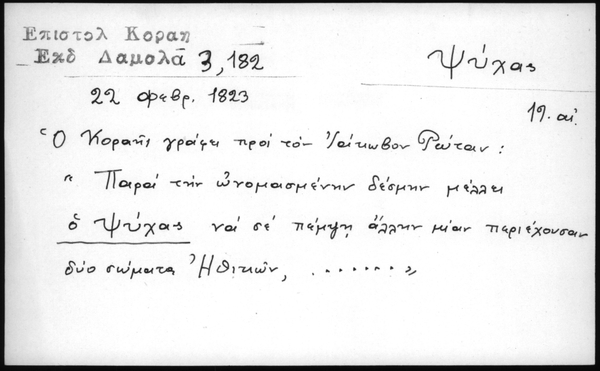 Επιστολ Κοραη
Εκδ Δαμαλᾶ 3,182
Ψύχας
22 φεβρ. 1823
19. αἰ.
Ὁ Κοραῆς γράφει πρὸς τὸν Ἰάκωβον Ρώταν:
"Παρὰ τὴν ὠνομασμένην δέσμην μέλλει
ὁ Ψύχας νά σέ πέμψῃ ἄλλην μίαν περιέχουσαν
δύο σώματα Ἠθικῶν, ......."